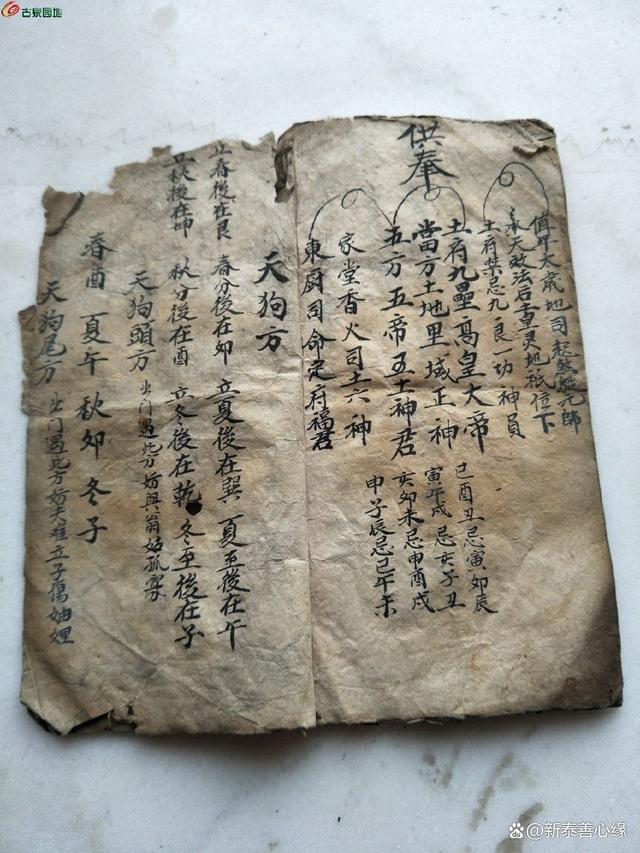 古泉园地
供奉
值年太歲地司起煞殷元帥
天政法后土灵地祇位下
土府禁忌九良一切神員
土府九壘高皇大帝
當方土地里域正神
五方五帝五土神君
家堂香火司土六神
東厨司命定府福君
巳酉丑忌寅卯辰
寅午戌忌亥子丑
亥卯未忌申酉戌
申子辰忌巳午未
天狗方
立春後在艮 春分後在卯 立夏後在巽 夏至後在午
立秋後在坤 秋分後在酉 立冬後在乾 冬至後在子
天狗頭方 出门遇此方妨與翁姑孤寡
春酉 夏午 秋卯 冬子
天狗尾方 出门遇此方妨夫难立子偶妯娌
@新泰善心缘